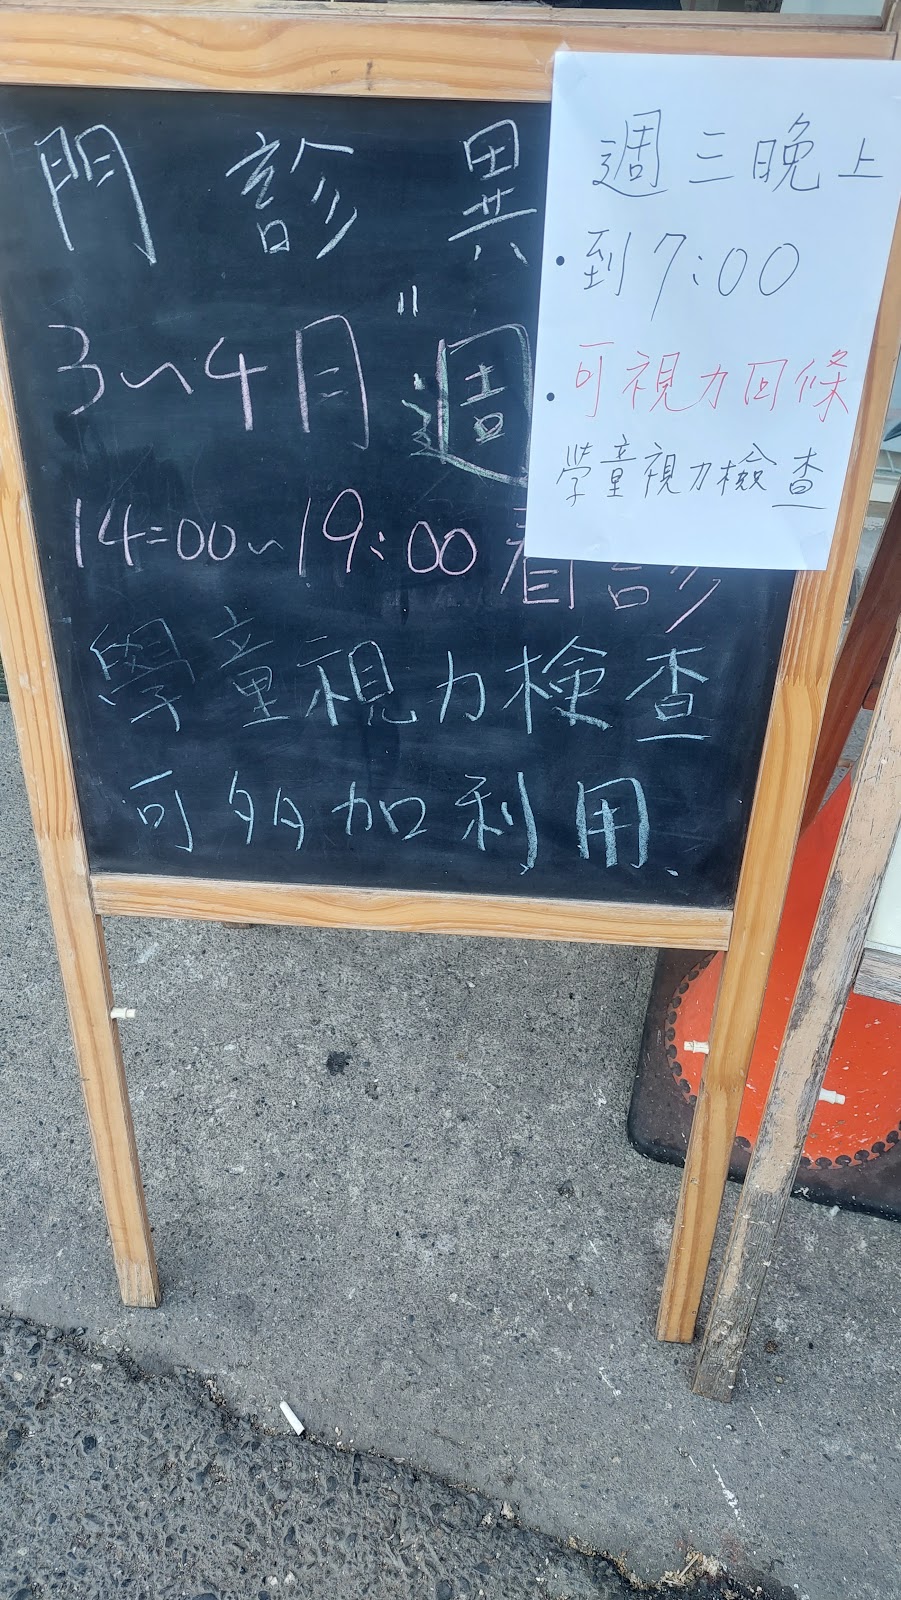 門診異
3~4月"週
14:00~19:00看診
學童視力檢查
可多加利用.
週三晚上
•到7:00
•可視力回條
學童視力檢查